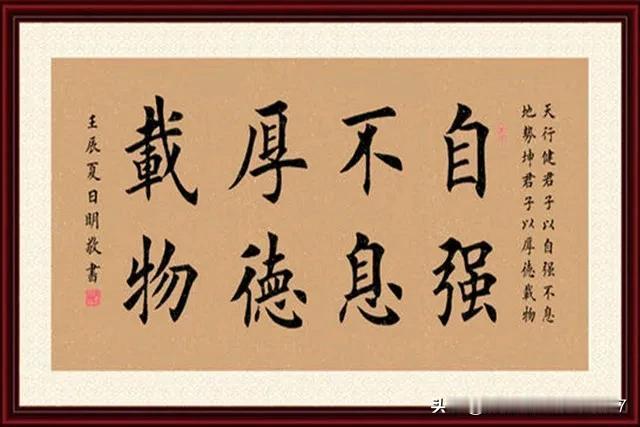 天行健君子以自强不息
地势坤君子以厚德載物
自强
不息
厚德
載物
壬辰夏日明敬書
头
7